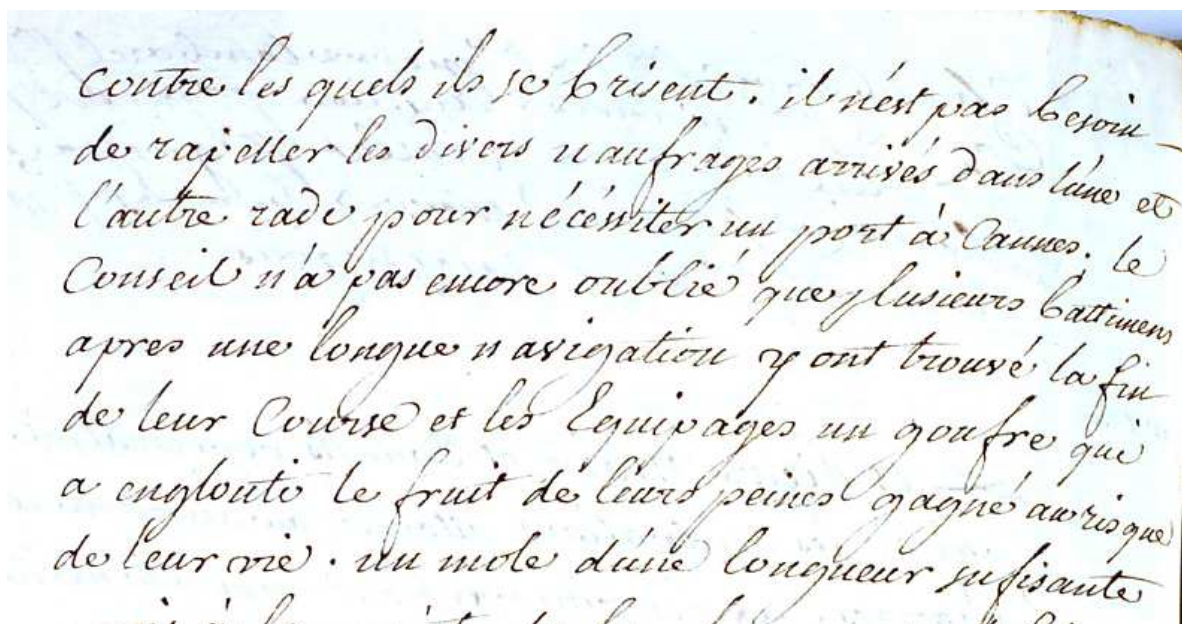 contre les quels ils se brisent. il n'est pas besoin
de rapeller les divers naufrages arrivés dans l'une et
l'autre rade pour nécéssiter un port à Cannes. le
Conseil n'a pas encore oublié que plusieurs battimens
apres une longue navigation y ont trouvé la fin
de leur Course et les Equipages un goufre qui
a englouti le fruit de leurs peines gagné au risque
de leur vie. un mole d'une longueur sufisante